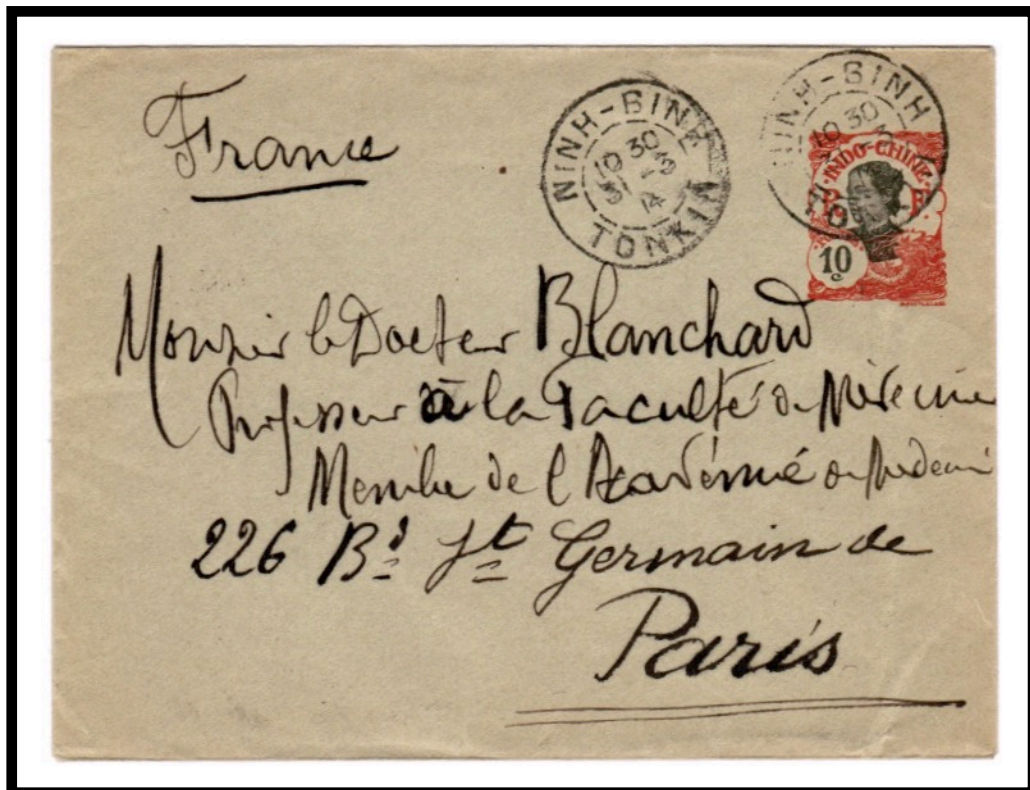 France
NINH-BINH
10 30
3
14
TONKIN
NINH-BINH
10 30
INDO-CHINE
R. F.
10
c
Monsieur le Docteur Blanchard
Professeur à la Faculté de Médecine
Membre de l'Académie de Médecine
226 Bd St Germain de
Paris